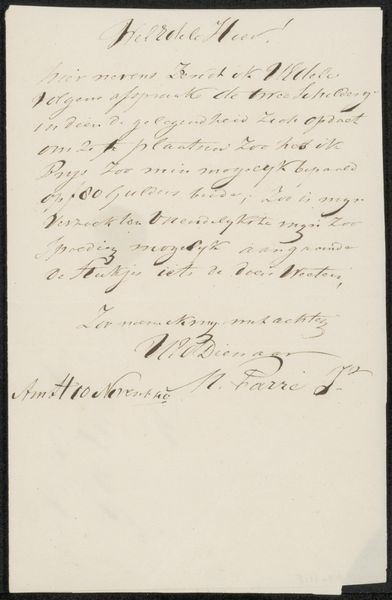 WelEdele Heer!
hier nevens Zendt ik UEdele
Volgens afspraak de twee Schildery
indien de gelegendheid Zich opdoet
om ze te plaatsen Zoo heb ik
Prys Zoo min mogelyk bepaald
op f 80 Guldens beide; Zoo is myn
Verzoek ten Vriendelykste myn Zoo
Spoedig mogelyk aangaande
de Stukjes iets te doen Weeten,
Zoo noem ik my met achting
UEd Dienaar
Amst 10 November
M. Jr